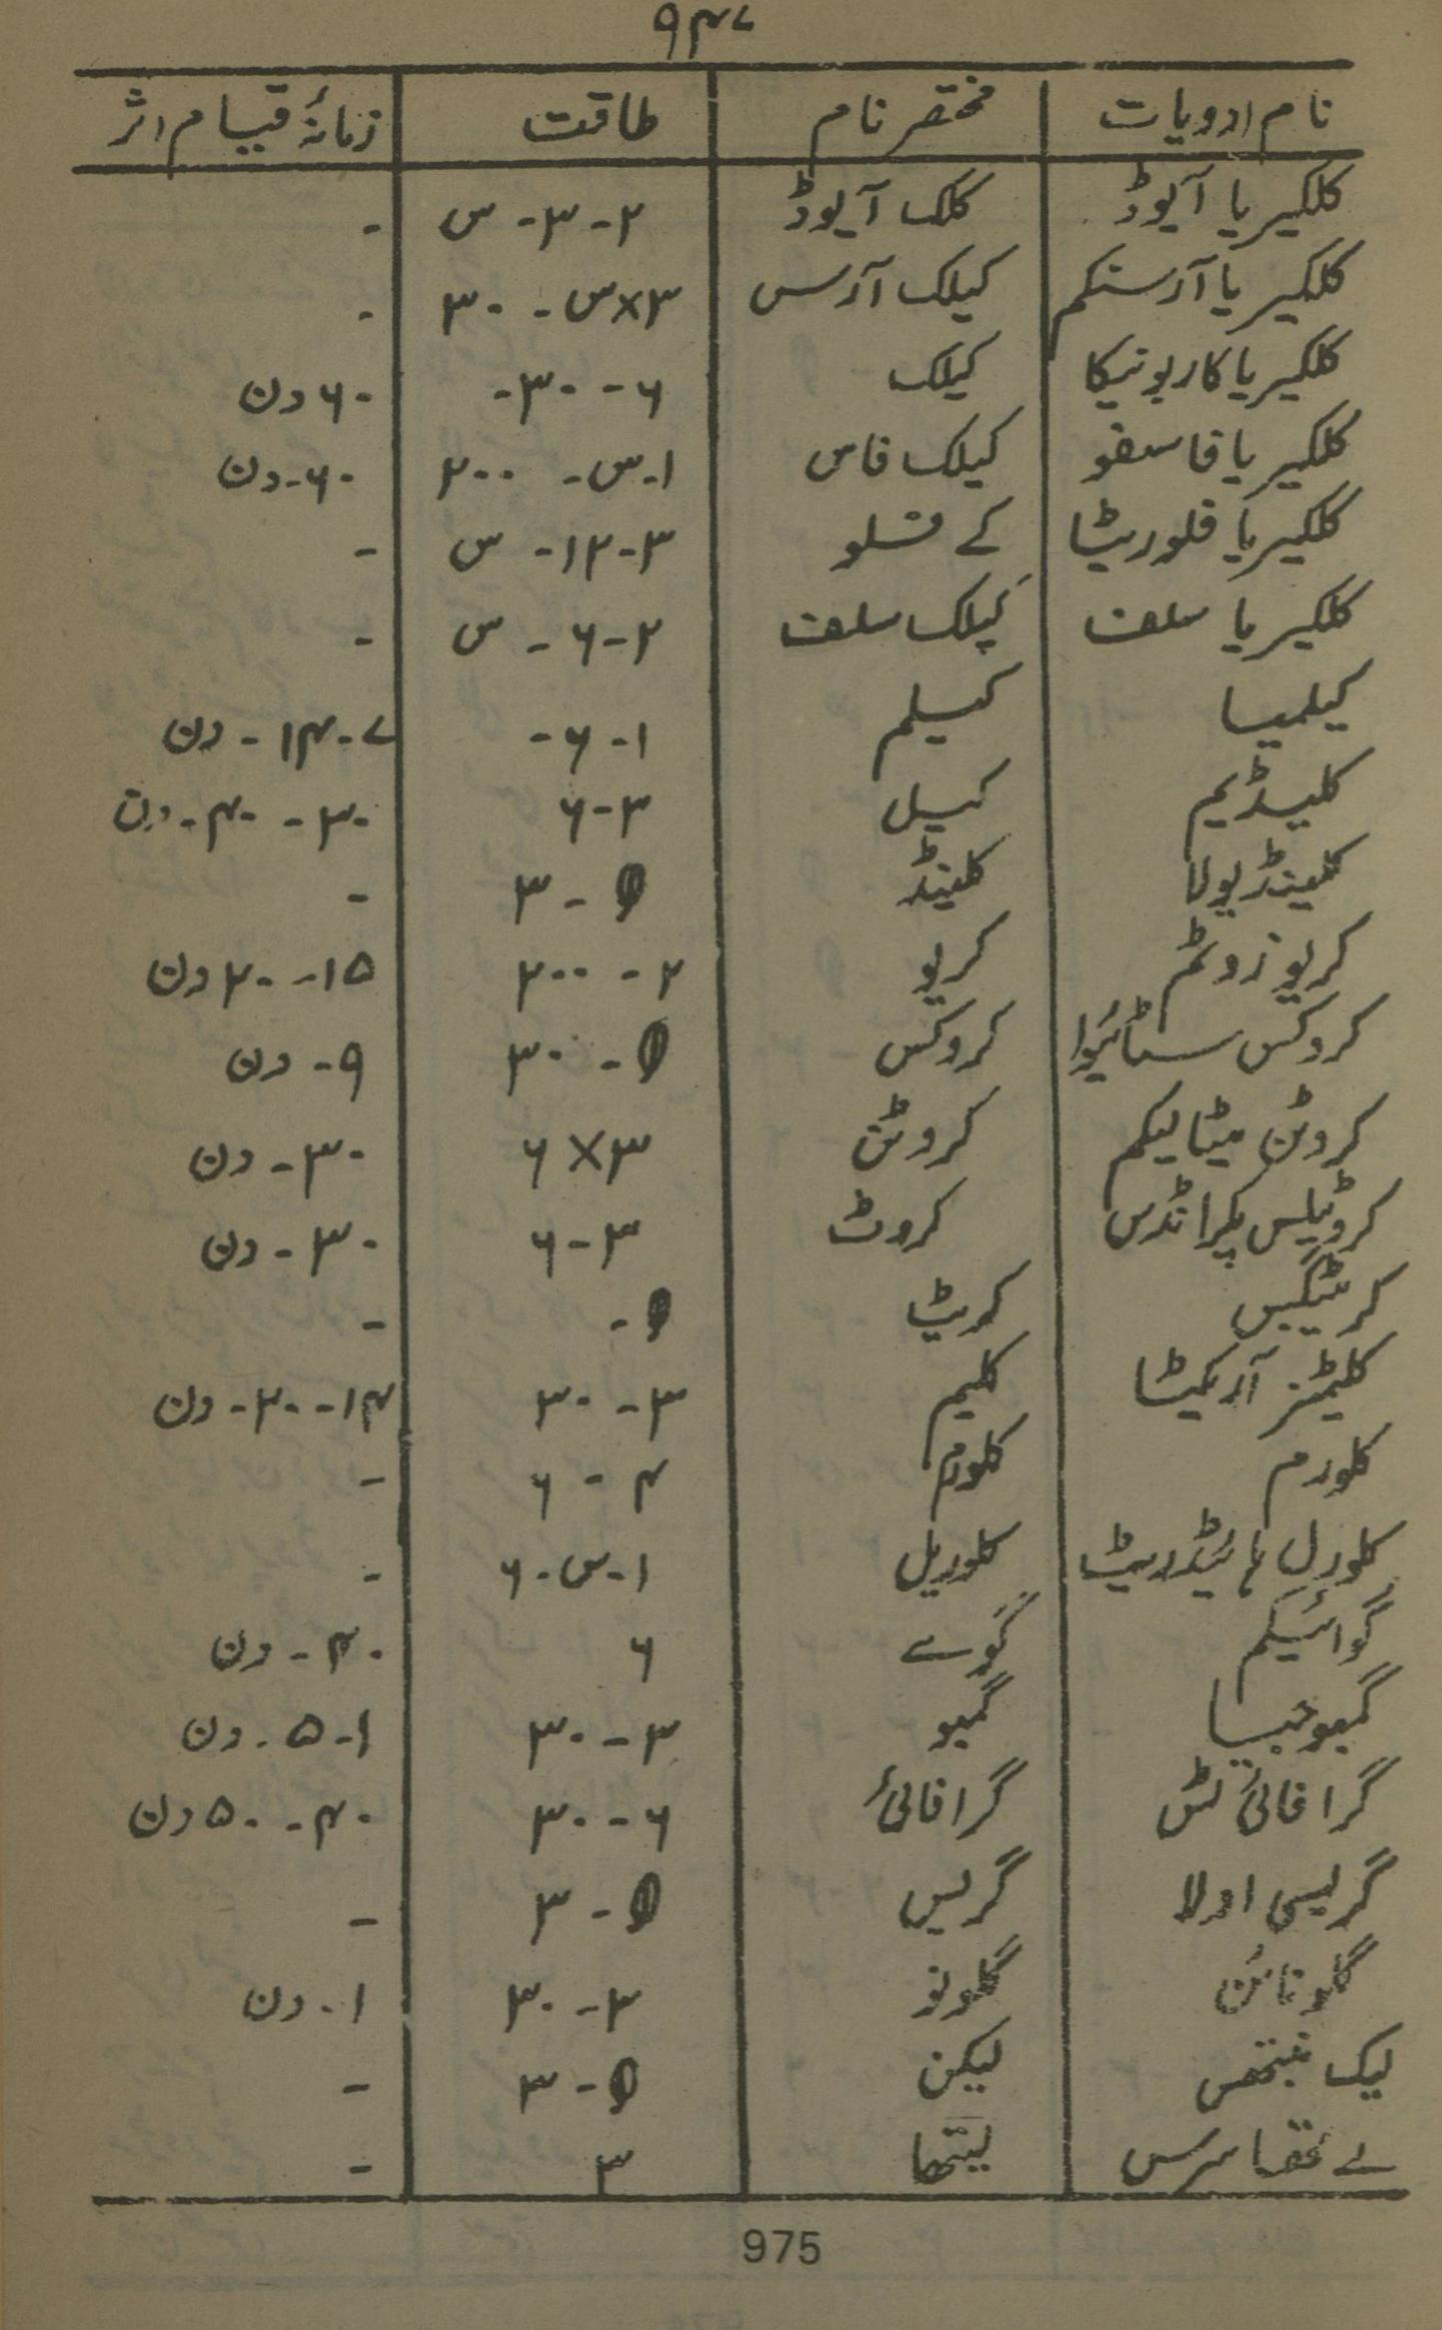 ۹۴۷
نام ادویات | مختصر نام | طاقت | زمانۂ قیام اثر
کلکیریا آیوڈ | کلک آیوڈ | ۲-۳-س | -
کلکیریا آرسنکم | کیلک آرسس | ۳×س - ۳۰ | -
کلکیریا کاربونیکا | کیلک | ۶ - ۳۰- | ۶۰ دن
کلکیریا فاسفو | کیلک فاس | ۱-س- ۲۰۰ | ۶۰-دن
کلکیریا فلوریٹا | کے فسلو | ۳-۱۲- س | -
کلکیریا سلف | کیلک سلف | ۲-۶ - س | -
کیلمیسا | کیسلم | ۱-۶- | ۷-۱۴- دن
کلیڈیم | کیسل | ۳-۶ | ۳۰ - ۴۰-دن
کلینڈیولا | کلینڈ | θ - ۳ | -
کریوزوٹم | کریو | ۲ - ۲۰۰ | ۱۵-۲۰ دن
کروکس سٹائیوا | کروکس | θ - ۳۰ | ۹- دن
کروٹن میٹالیکم | کروٹن | ۳×۶ | ۳۰-دن
کروٹیلس ہکرانڈس | کروٹ | ۳-۶ | ۳۰-دن
کریٹیگیس | کریٹ | θ - | -
کلیمٹیز آرکیٹا | کلیم | ۳-۳۰ | ۱۴-۲۰-دن
کلورم | کلورم | ۴ - ۶ | -
کلورل ہائیڈریٹ | کلوریل | ۱-س-۶ | -
گوائیکم | گوے | ۶ | ۴۰-دن
گمبوجیسا | گمبو | ۳-۳۰ | ۱-۵-دن
گرافائی ٹس | گرافائی | ۶-۳۰ | ۴۰-۵۰ دن
گریسی اولا | گریس | θ - ۳ | -
گلونائن | گلونو | ۳-۳۰ | ۱-دن
لیک نینتھس | لیکن | θ - ۳ | -
لے تھا سرس | لیتھا | ۳ | -
975